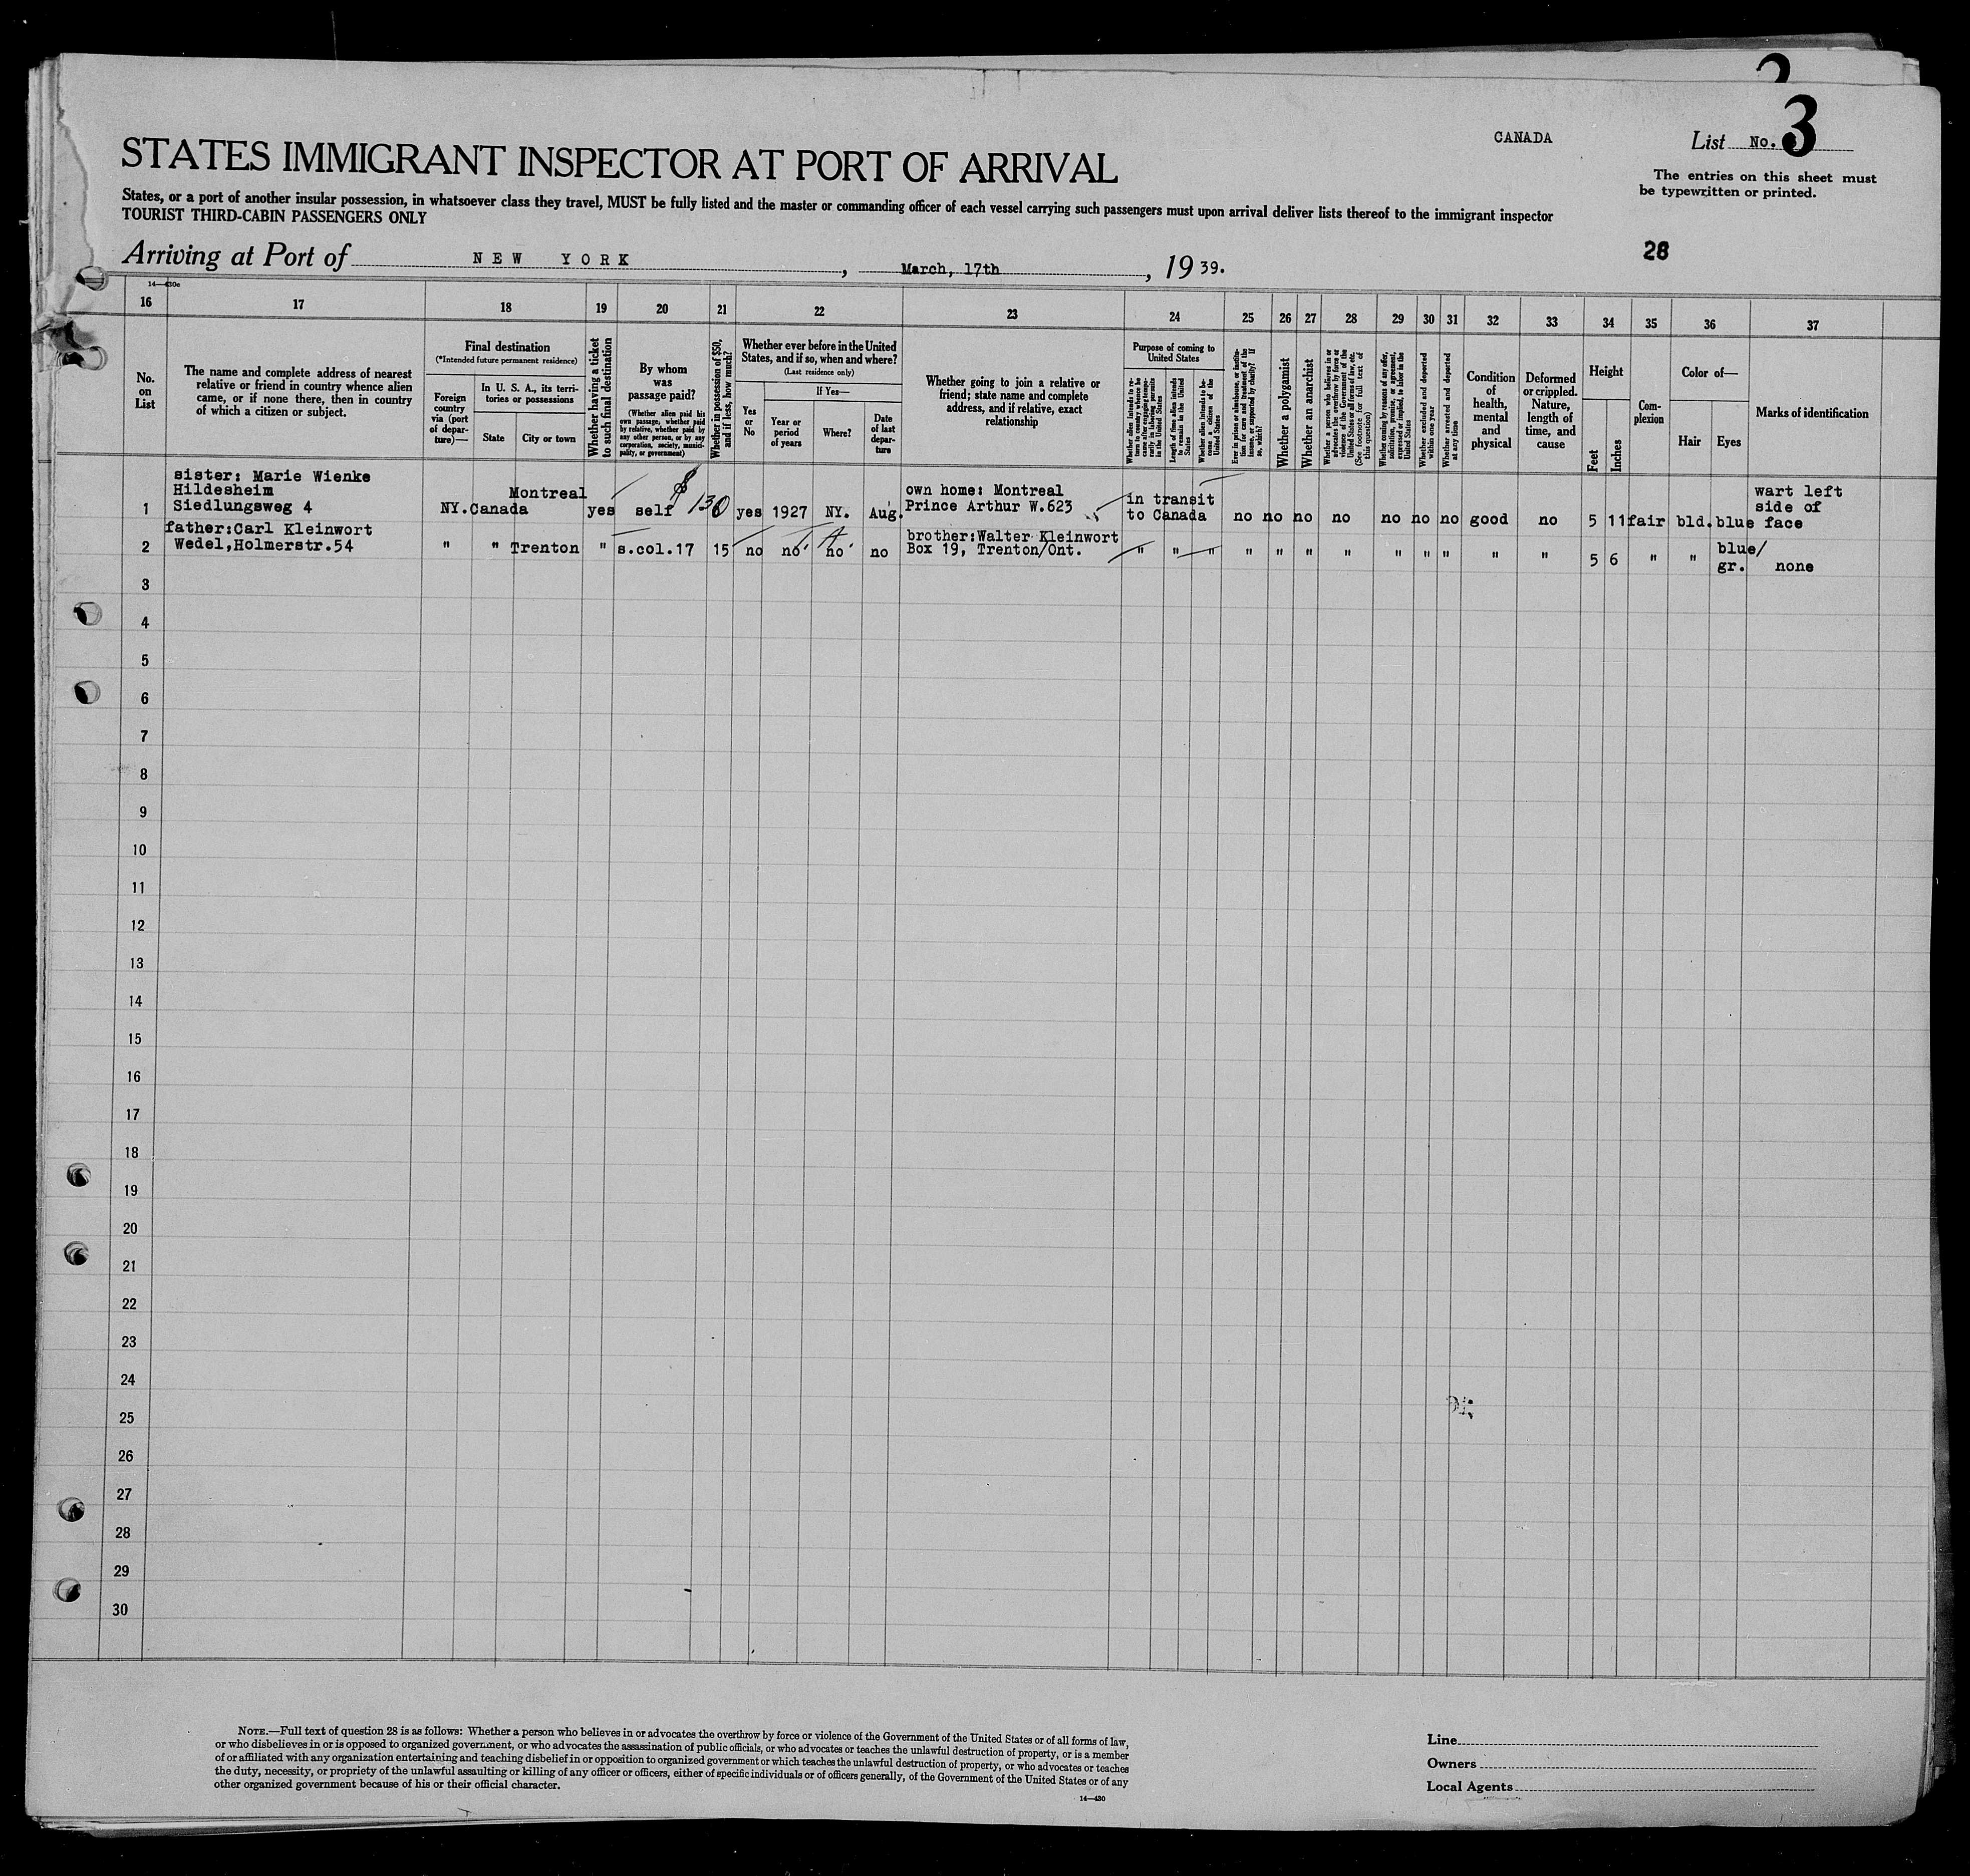 2
3
CANADA
List No.
STATES IMMIGRANT INSPECTOR AT PORT OF ARRIVAL
The entries on this sheet must
be typewritten or printed.
States, or a port of another insular possession, in whatsoever class they travel, MUST be fully listed and the master or commanding officer of each vessel carrying such passengers must upon arrival deliver lists thereof to the immigrant inspector
TOURIST THIRD-CABIN PASSENGERS ONLY
28
Arriving at Port of NEW YORK, March, 17th, 1939.
16 17 18 19 20 21 22 23 24 25 26 27 28 29 30 31 32 33 34 35 36 37
No. on List
The name and complete address of nearest
relative or friend in country whence alien
came, or if none there, then in country
of which a citizen or subject.
Final destination
(*Intended future permanent residence)
Foreign country via (port of departure)—
In U. S. A., its territories or possessions
State
City or town
Whether having a ticket to such final destination
By whom was passage paid?
(Whether alien paid his own passage, whether paid by relative, whether paid by any other person, or by any corporation, society, municipality, or government)
Whether in possession of $50, and if less, how much?
Whether ever before in the United
States, and if so, when and where?
(Last residence only)
Yes or No
If Yes—
Year or period of years
Where?
Date of last departure
Whether going to join a relative or
friend; state name and complete
address, and if relative, exact
relationship
Purpose of coming to United States
Whether alien intends to return to country whence he came after engaging temporarily in laboring pursuits in the United States
Length of time alien intends to remain in the United States
Whether alien intends to become a citizen of the United States
Ever in prison or almshouse, or institution for care and treatment of the insane, or supported by charity? If so, which?
Whether a polygamist
Whether an anarchist
Whether a person who believes in or advocates the overthrow by force or violence of the Government of the United States or all forms of law, etc. (See footnote for full text of this question)
Whether coming by reasons of any offer, solicitation, promise, or agreement, expressed or implied, to labor in the United States
Whether excluded and deported within one year
Whether arrested and deported at any time
Condition of health, mental and physical
Deformed or crippled. Nature, length of time, and cause
Height
Feet
Inches
Complexion
Color of—
Hair
Eyes
Marks of identification
sister: Marie Wienke
Hildesheim
1 Siedlungsweg 4 NY. Canada Montreal yes self $ 130 yes 1927 NY. Aug.
own home: Montreal
Prince Arthur W.623
in transit
to Canada
no no no no no no no good no 5 11 fair bld. blue
wart left
side of
face
father:Carl Kleinwort
2 Wedel,Holmerstr.54 " " Trenton " s.col.17 15 no no no no
brother:Walter Kleinwort
Box 19, Trenton/Ont.
" " " " " " " " " " " " 5 6 " " blue/
gr. none
3
4
5
6
7
8
9
10
11
12
13
14
15
16
17
18
19
20
21
22
23
24
25
26
27
28
29
30
NOTE.—Full text of question 28 is as follows: Whether a person who believes in or advocates the overthrow by force or violence of the Government of the United States or of all forms of law,
or who disbelieves in or is opposed to organized government, or who advocates the assassination of public officials, or who advocates or teaches the unlawful destruction of property, or is a member
of or affiliated with any organization entertaining and teaching disbelief in or opposition to organized government or which teaches the unlawful destruction of property, or who advocates or teaches
the duty, necessity, or propriety of the unlawful assaulting or killing of any officer or officers, either of specific individuals or of officers generally, of the Government of the United States or of any
other organized government because of his or their official character.
14—430
Line
Owners
Local Agents